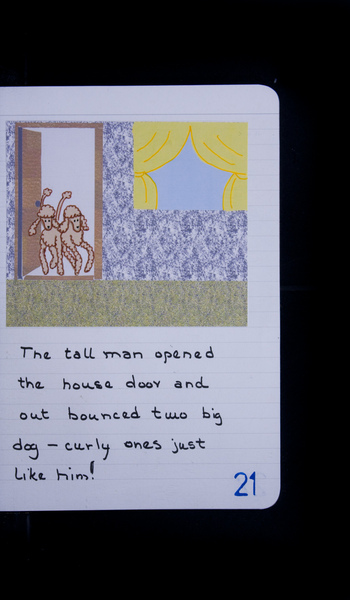 The tall man opened
the house door and
out bounced two big
dog - curly ones just
like him!
21